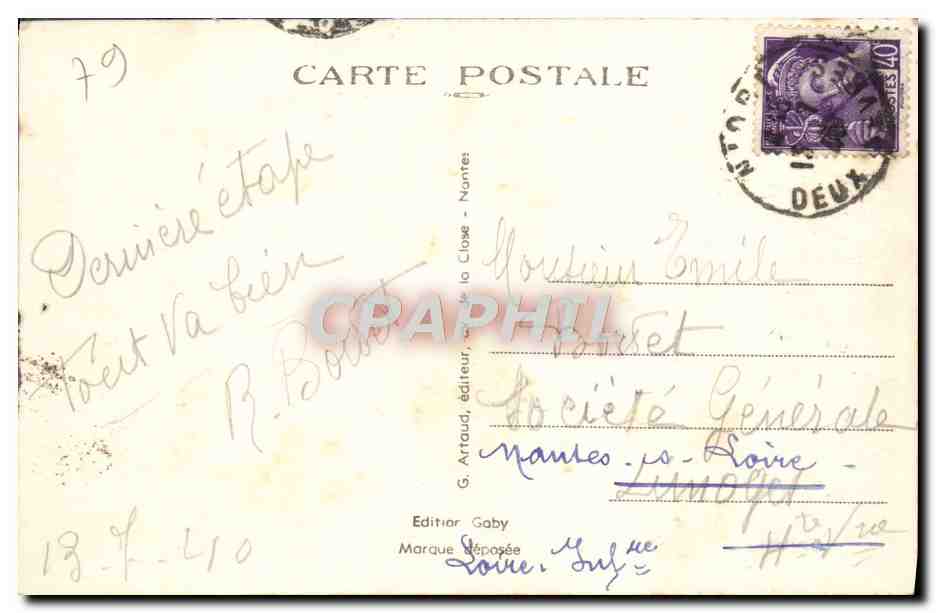 79
CARTE POSTALE
40
POSTES
DEUX
Dernière étape
Tout va bien
R. Bouret
13-7-40
G. Artaud, éditeur, de la Close - Nantes
Monsieur Emile
Bouret
Société Générale
Nantes-s-Loire
Limoges
Hte Vne
Loire-Infre
Edition Gaby
Marque déposée
CPARPHIL